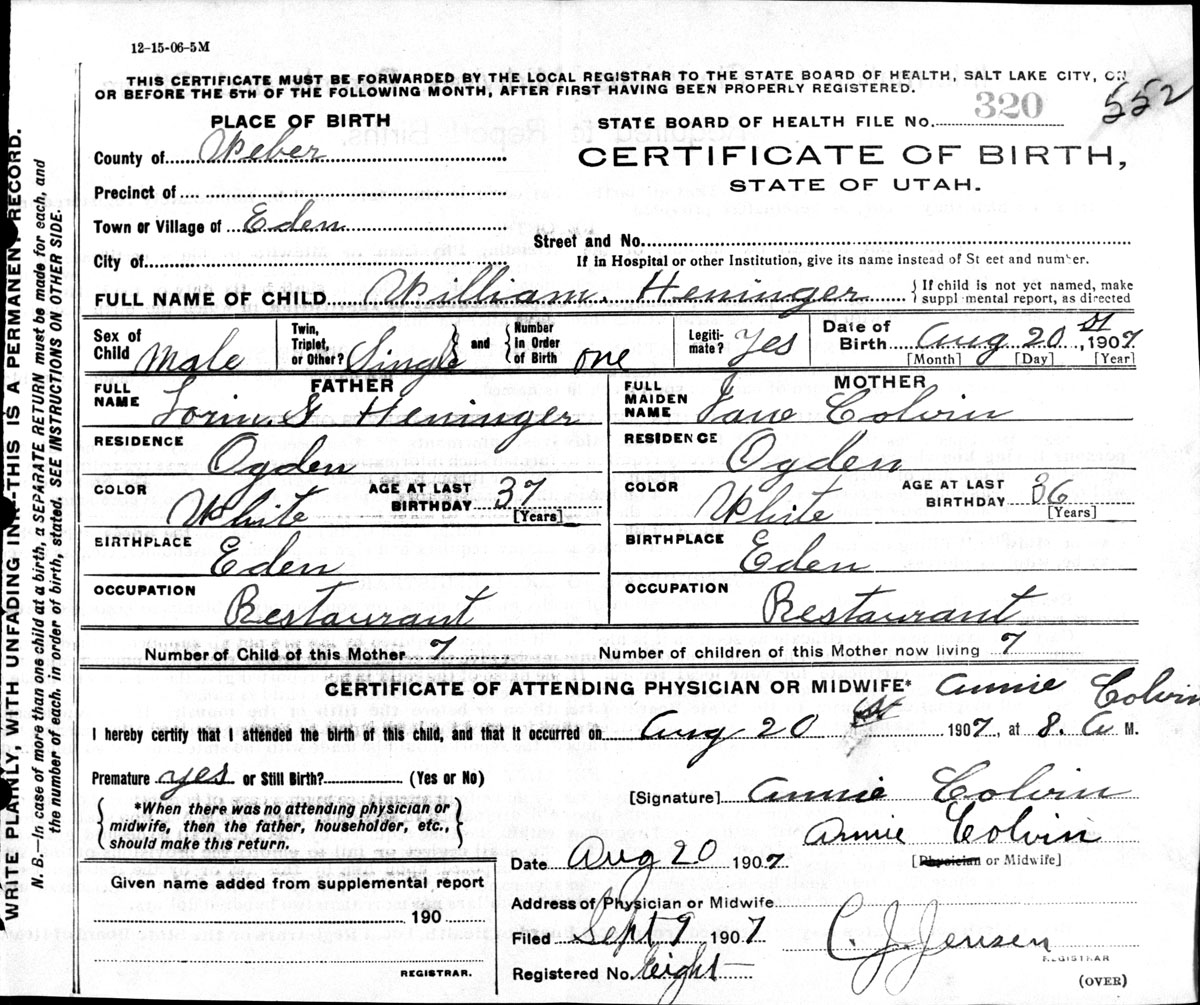 12-15-06-5M
THIS CERTIFICATE MUST BE FORWARDED BY THE LOCAL REGISTRAR TO THE STATE BOARD OF HEALTH, SALT LAKE CITY, ON
OR BEFORE THE 5TH OF THE FOLLOWING MONTH, AFTER FIRST HAVING BEEN PROPERLY REGISTERED.
552
PLACE OF BIRTH
STATE BOARD OF HEALTH FILE No. 320
County of Weber
CERTIFICATE OF BIRTH,
STATE OF UTAH.
Precinct of
Town or Village of Eden
Street and No.
City of
If in Hospital or other Institution, give its name instead of St eet and number.
FULL NAME OF CHILD William. Heninger
If child is not yet named, make
suppl mental report, as directed
Sex of Child Male
Twin, Triplet, or Other? Single
and Number in Order of Birth one
Legiti-mate? Yes
Date of Birth Aug 20 st, 1907
[Month] [Day] [Year]
FATHER
FULL NAME Lorin. G Heninger
RESIDENCE Ogden
COLOR White
AGE AT LAST BIRTHDAY 37
[Years]
BIRTHPLACE Eden
OCCUPATION Restaurant
MOTHER
FULL MAIDEN NAME Jane Colvin
RESIDENCE Ogden
COLOR White
AGE AT LAST BIRTHDAY 36
[Years]
BIRTHPLACE Eden
OCCUPATION Restaurant
Number of Child of this Mother 7
Number of children of this Mother now living 7
CERTIFICATE OF ATTENDING PHYSICIAN OR MIDWIFE* Annie Colvin
I hereby certify that I attended the birth of this child, and that it occurred on Aug 20 1907, at 8. A M.
Premature yes or Still Birth? (Yes or No)
*When there was no attending physician or
midwife, then the father, householder, etc.,
should make this return.
[Signature] Annie Colvin
Annie Colvin
[Physician or Midwife]
Date Aug 20 1907
Given name added from supplemental report
190
REGISTRAR.
Address of Physician or Midwife
Filed Sept 9 1907
C. J. Jensen
REGISTRAR
Registered No. Eight
(OVER)
WRITE PLAINLY, WITH UNFADING INK-THIS IS A PERMANENT RECORD.
N. B.—In case of more than one child at a birth, a SEPARATE RETURN must be made for each, and
the number of each, in order of birth, stated. SEE INSTRUCTIONS ON OTHER SIDE.